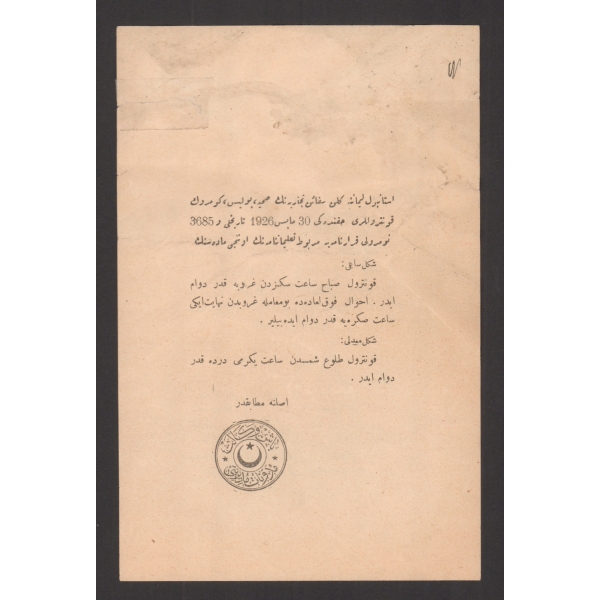 استانبول لیمانه کلن سفائن تجاریه‌نك صحیه، پولیس، کومروك
قونتروللری حقنده‌کی 30 مایس 1926 تاریخلی و 3685
نومرولی قرارنامه‌یه مربوط تعلیماتنامه‌نك اوننجی ماده‌سنك
شکل سابقی:
قونترول صباح ساعت سکزدن غروبه قدر دوام
ایدر. احوال فوق‌العاده‌ده بو معامله غروبدن نهایت ایکی
ساعت صکره‌یه قدر دوام ایده‌بیلیر.
شکل معدلی:
قونترول طلوع شمسدن ساعت یکرمی درده قدر
دوام ایدر.
اصلنه مطابقدر
باش وکالت